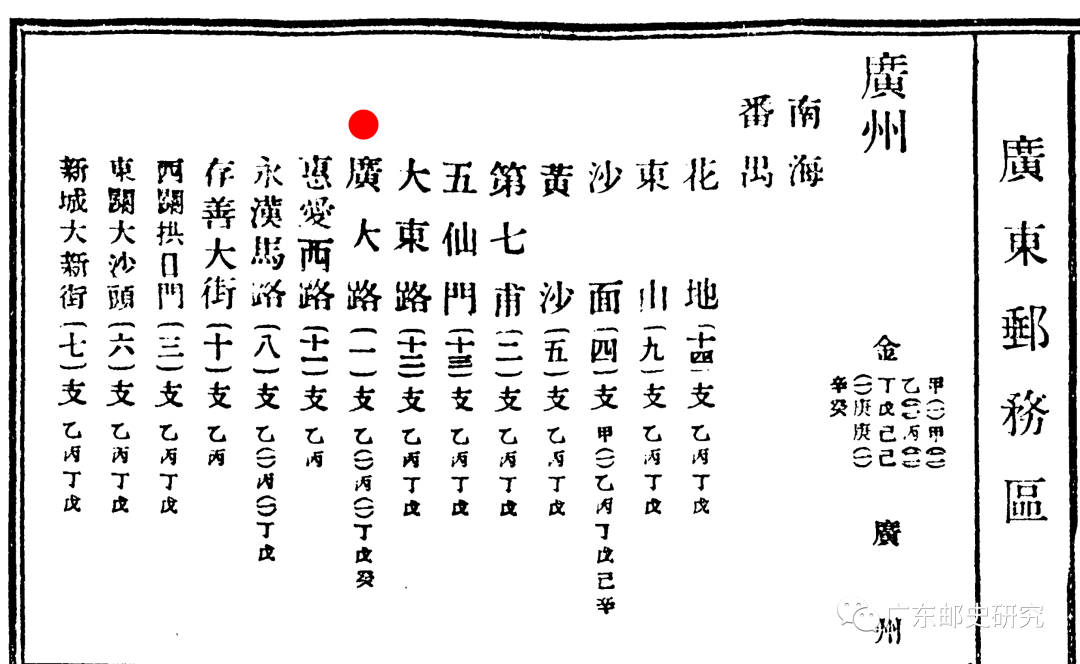 廣東郵務區
廣州
金
廣州
甲(一)甲(一)
乙(一)丙(一)
丁戊己己
(一)庚庚(一)
辛癸
南海
番禺
花地(十四)支 乙丙丁戊
東山(九)支 乙丙丁戊
沙面(四)支 甲(一)乙丙丁戊己辛
黃沙(五)支 乙丙丁戊
第七甫(二)支 乙丙丁戊
五仙門(十三)支 乙丙丁戊
大東路(十二)支 乙丙丁戊
廣大路(一)支 乙(一)丙(一)丁戊癸
惠愛西路(十一)支 乙丙
永漢馬路(八)支 乙(一)丙(一)丁戊
存善大街(十)支 乙丙
西關拱日門(三)支 乙丙丁戊
東關大沙頭(六)支 乙丙丁戊
新城大新街(七)支 乙丙丁戊
广东邮史研究